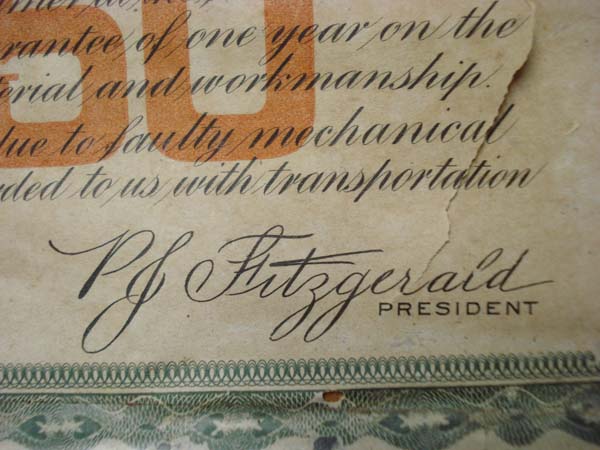 rantee of one year on the
erial and workmanship.
due to faulty mechanical
ded to us with transportation
PJ Fitzgerald
PRESIDENT